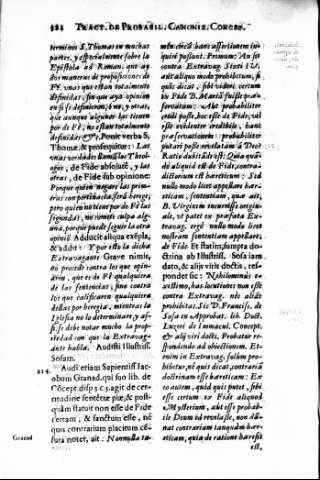 182 TRACT. DE PROBABIL. CANONIZ. CONCEP.
terminis S. Thomas en muchas
partes, y especialmente sobre la
Epistola ad Roman. que ay
dos maneras de proposiciones de
Fè. vnas que estan totalmente
definidas, sin que aya opinion
en si se definieron, ò no, y otras,
que aunque algunos las tienen
por de Fè, no estan totalmente
Thomæ, & prosequitur: Las
vnas verdades llama el Theologo,
de Fide absolutè, y las
otras, de Fide sub opinione:
Porque quien negare las primeras
con pertinacia serà herege;
pero quien no tiene por de Fè las
segundas, no comete culpa alguna,
porque puede seguir la otra
opinion. Adducit aliqua exepla,
& addit: Y por esto la dicha
Extravagante Grave nimis,
no procede contra los que opinaren,
que es de Fè qualquiera
de las sentencias, sino contra
los que calificaren qualquiera
dellas por heregia, mientras la
Iglesia no lo determinare, y assi
se debe notar mucho la propriedad
con que la Extravagante
habla. Audisti Illustriss.
Sosam.
214. Audi etiam Sapientiss Iacobum
Granad. qui suo lib. de
Cōcept. disp 5. c. 9. agit de certitudine
sententiæ piæ; & postquàm
statuit non esse de Fide
certam; & sanctum esse, nè
quis contrarium placitum censura
notet, ait: Nonnulla ta-
Granad
men circà hanc assertionem inquiri
possunt. Primum: An sit
contra Extravag. Sixti IV.
aut aliquo modo prohibitum, si
quis dicat, sibi videri certum
de Fide B. Maria fuisse præservatam:
Aut probabiliter
credi posse, hoc esse de Fide, vel
esse evidenter credibile, hanc
præservationem: probabiliter
putari posse revelatam à Deo?
Ratio dubitandi est: Quia qui dicit
aliquid est de Fide, contradictoriam
est hæreticum: Sed
nullo modo licet appellare hæreticam,
sententiam, quæ ait,
B. Virginem incurrisse originale,
vt patet ex præfata Extravag.
ergo nullo modo licet
nostram sententiam appellare,
de Fide. Et statim, sumpta doctrina
ab Illustriss. Sosa iam
dato, & alijs viris doctis, respondet
sic: Nihilominùs existimo,
has locutiones non esse
contra Extravag. nec aliàs
prohibitas. Sic D. Francisc. de
Sosa in Approbat. lib. Doct.
Luzeri de Immacul. Concept.
& alij viri docti. Probatur respondendo
ad obiectionem. Etenim
in Extravag. solùm prohibetur,
nè quis dicat, contrariã
doctrinam esse hæreticam: Ex
eo autem, quòd quis putet, sibi
esse certum ex Fide aliquod
Mysterium, aut esse probabile
Deum id revelasse, non damnat
contrariam tanquàm hæreticam,
quia de ratione hæresis
est,